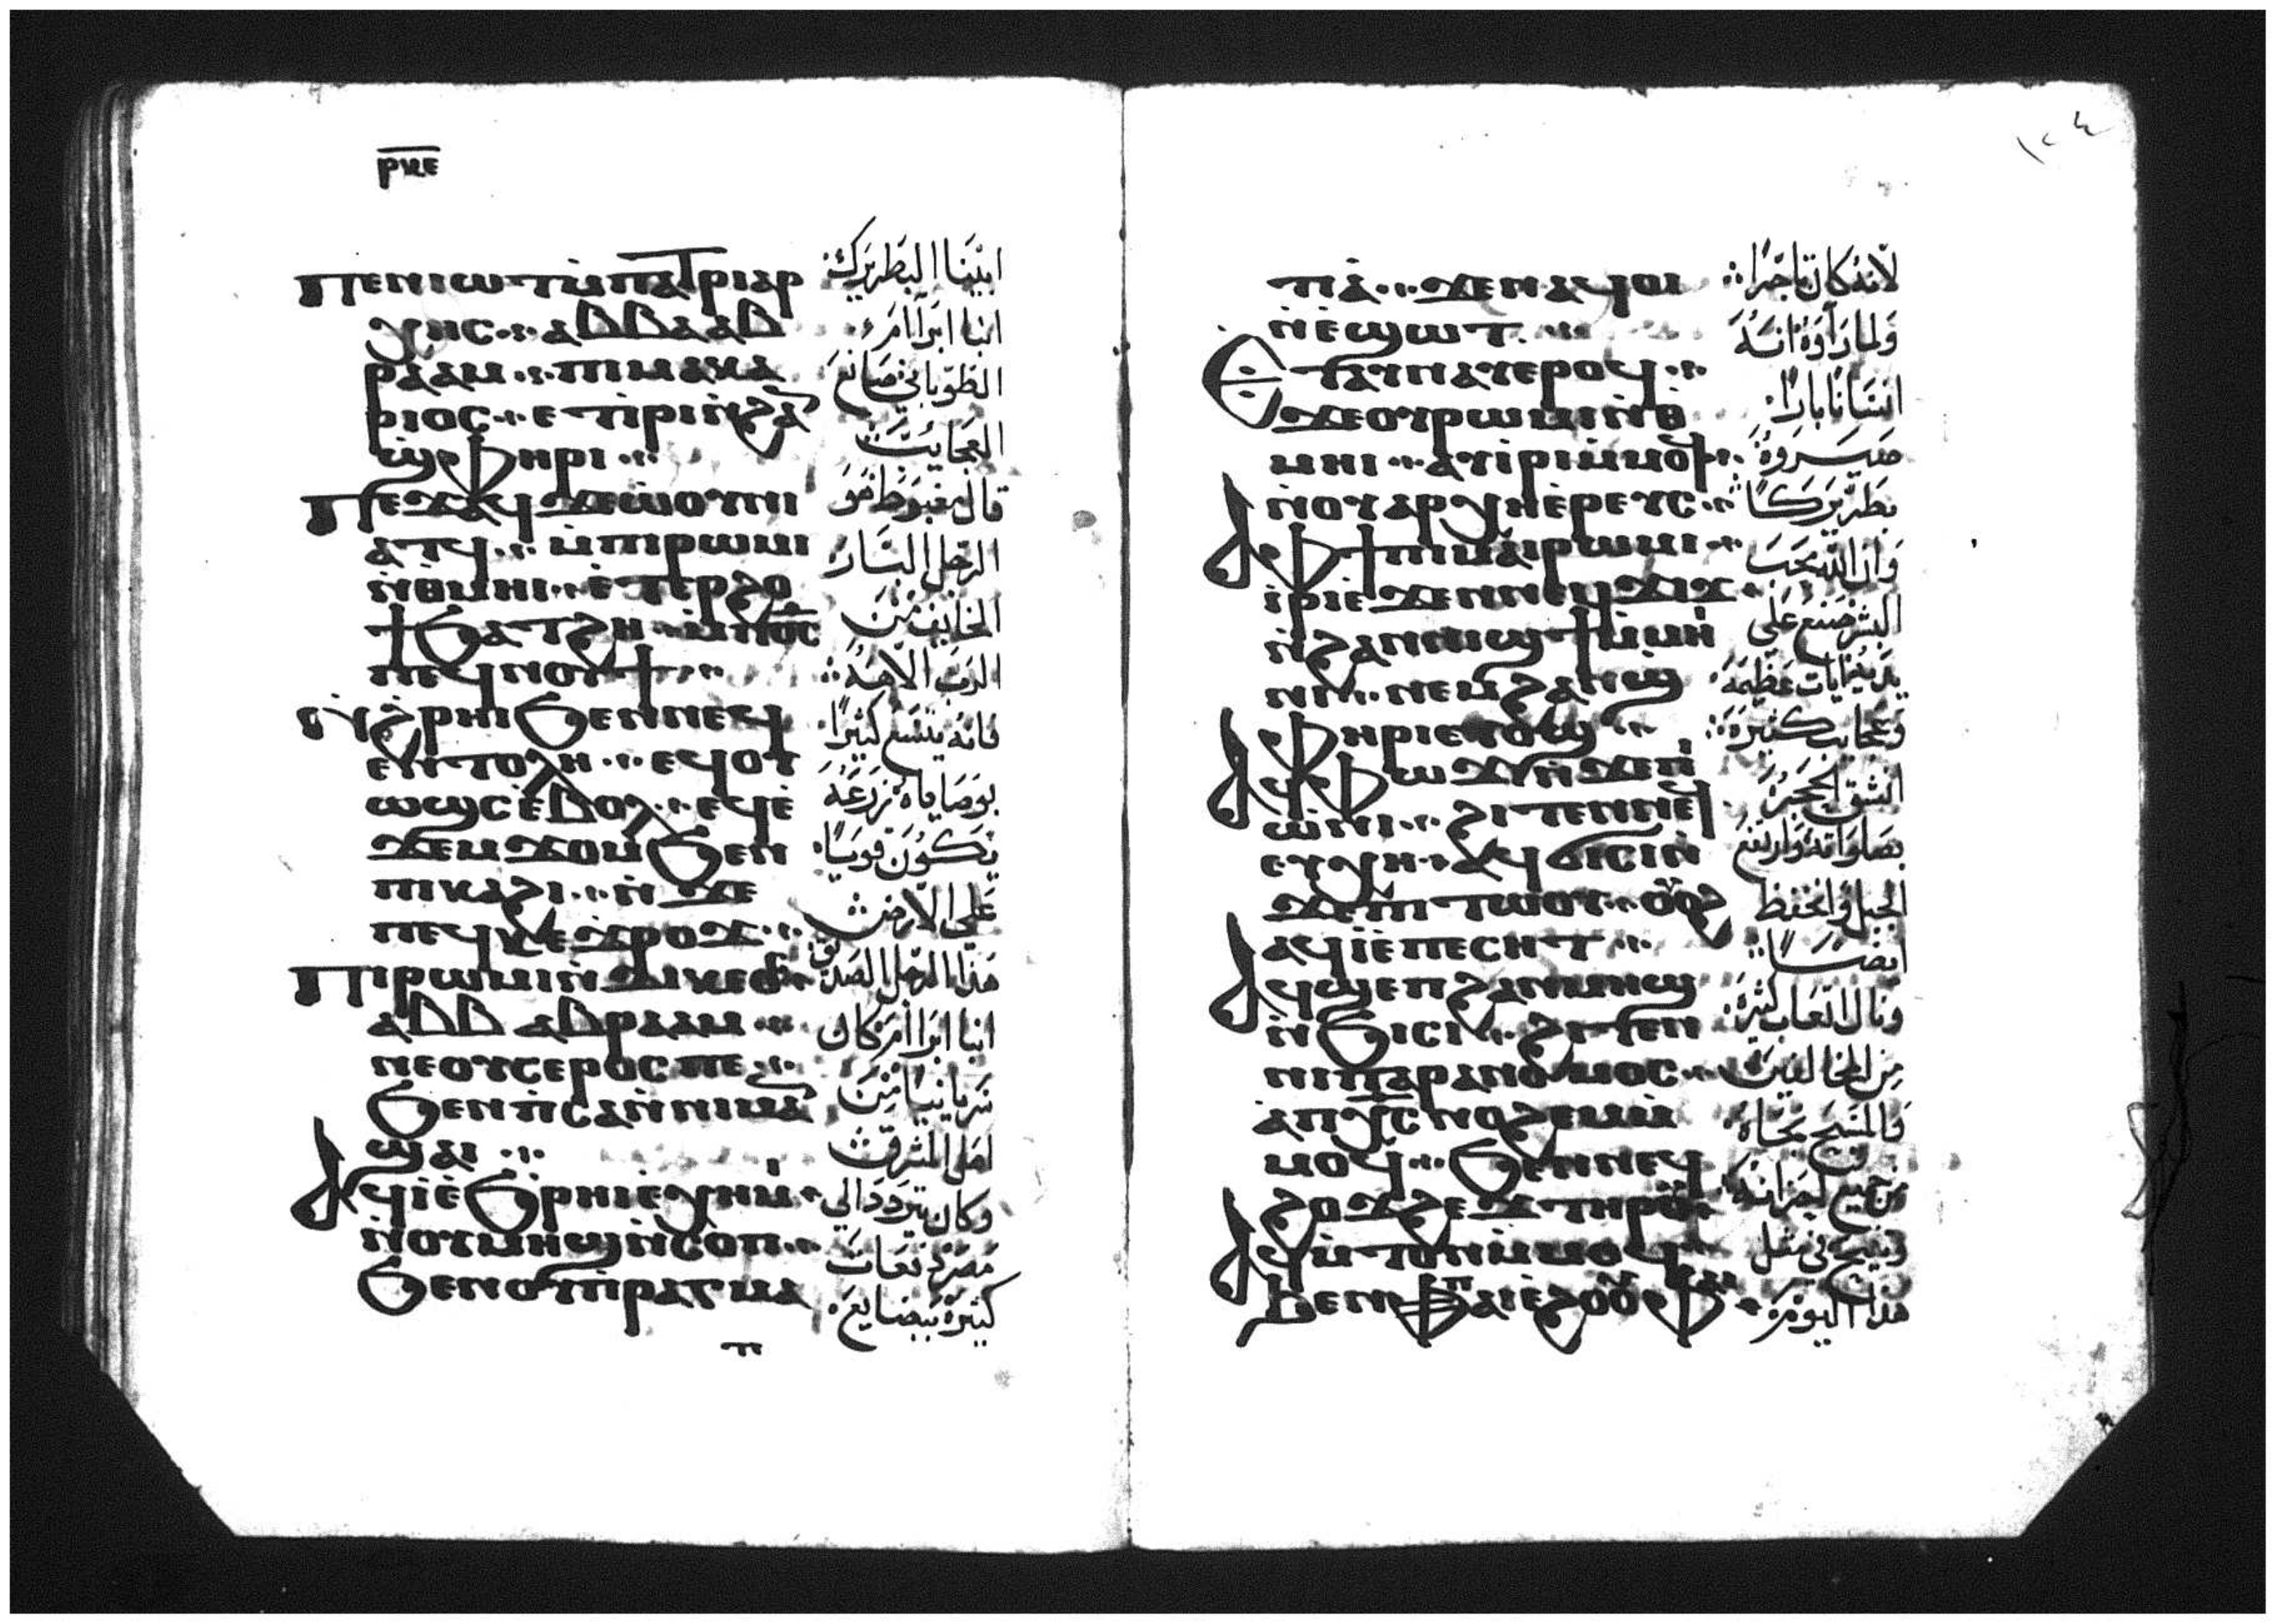 ⲣⲕⲉ
ⲡⲉⲛⲓⲱⲧ ⲙ̀ⲡⲁⲧⲣⲓⲁⲣ
ⲭⲏⲥ ⲁⲃⲃⲁ ⲁⲃ
ⲣⲁⲁⲙ ⲡⲓⲙⲁⲕⲁ
ⲣⲓⲟⲥ ⲉⲧⲓ̀ⲣⲓ ⲛ̀ϩⲁⲛ
ϣ̀ⲫⲏⲣⲓ
ⲡⲉϫⲁϥ ϫⲉ ⲱⲟⲩⲛⲓ
ⲁⲧϥ ⲙ̀ⲡⲓⲣⲱⲙⲓ
ⲛ̀ⲑⲙⲏⲓ ⲉ̀ⲧⲉⲣϩⲟ
ϯ ϧⲁⲧϩⲏ ⲙ̀ⲡⲟ̅ⲥ̅
ⲡⲉϥⲛⲟⲩϯ
ⲛ̀ϩ̀ⲣⲏⲓ ϧⲉⲛ ⲛⲉϥ
ⲉⲛⲧⲟⲗⲏ ⲉϥⲟⲩ
ⲱϣⲥ ⲉ̀ⲃⲟⲗ ⲉϥⲉ̀
ϫⲉⲙϫⲟⲙ ϧⲉⲛ
ⲡⲓⲕⲁϩⲓ ⲛ̀ϫⲉ
ⲡⲉϥϫ̀ⲣⲟϫ
ⲡⲓⲣⲱⲙⲓ ⲛ̀ⲇⲓⲕⲉⲟⲥ
ⲁⲃⲃ ⲁⲃⲣⲁⲁⲙ
ⲛⲉⲟⲩⲥⲉⲣⲟⲥ ⲡⲉ
ϧⲉⲛ ⲡ̀ⲥⲁ ⲛ̀ⲛⲓⲙⲁⲛ
ϣⲁⲓ
ⲁϥⲓ̀ ⲉ̀ϧ̀ⲣⲏⲓ ⲉⲭⲏⲙⲓ
ⲛ̀ⲟⲩⲙⲏϣ ⲛ̀ⲥⲟⲡ
ϧⲉⲛ ⲟⲩⲡ̀ⲣⲁⲅⲙⲁ
ابينا البطريرك
انبا ابراآمر
الطوباني صانع
العجايب
قال مغبوط هو
الرجل البار
الخايف من
الرب الاهه
فانه يتسع كثيرا
بوصاياه زرعه
يكون قويا
على الارض
هذا الرجل الصديق
انبا ابراآمر كان
سريانيا من
اهل المشرق
وكان يتردد الي
مصر دفعات
كثيرة ببضايع
١٢٤
ⲧⲓⲁ̀ ϫⲉ ⲛⲁϥⲟⲓ
ⲛ̀ⲉ̀ϣⲱⲧ
ⲉⲧⲁⲩⲛⲁⲩ ⲉⲣⲟϥ
ϫⲉ ⲟⲩⲣⲱⲙⲓ ⲛ̀ⲑ
ⲙⲏⲓ ⲁⲩⲓ̀ⲣⲓ ⲙ̀ⲙⲟϥ
ⲛ̀ⲟⲩⲁⲣⲭⲏⲉ̀ⲣⲉⲩⲥ
ⲁ ⲫϯ ⲡⲓⲙⲁⲓⲣⲱⲙⲓ
ⲓ̀ⲣⲓ ⲉ̀ϫⲉⲛ ⲛⲉϥϫⲓϫ
ⲛ̀ϩⲁⲛⲛⲓϣϯ ⲙ̀ⲙⲏ
ⲛⲓ ⲛⲉⲙ ϩⲁⲛϣ
ⲫⲏⲣⲓ ⲉⲩⲟϣ
ⲁϥⲫⲱϫⲓ ⲛ̀ϫⲉ ⲡⲓ
ⲱ̀ⲛⲓ ϩⲓⲧⲉⲛ ⲛⲉϥ
ⲉⲩⲭⲏ ⲁϥϭⲓⲥⲓ ⲛ̀
ϫⲉ ⲡⲓⲧⲱⲟⲩ ⲟⲩⲟϩ
ⲁϥⲓ̀ ⲉ̀ⲡⲉⲥⲏⲧ
ⲁϥϣⲉⲡ ϩⲁⲛⲙⲏϣ
ⲛ̀ϧⲓⲥⲓ ϩⲓⲧⲉⲛ
ⲛⲓⲡⲁⲣⲁⲛⲟⲙⲟⲥ
ⲁ ⲡⲭ̅ⲥ̅ ⲛⲟϩⲉⲙ ⲙ̀
ⲙⲟϥ ϧⲉⲛ ⲛⲉϥ
ϩⲟϫϩⲉϫ ⲧⲏⲣⲟⲩ
ⲁϥⲙ̀ⲧⲟⲛ ⲙ̀ⲙⲟϥ
ϧⲉⲛ ⲡⲁⲓⲉ̀ϩⲟⲟⲩ ⲫⲁⲓ
لانه كان تاجرا
ولما راوه انسه
انسانا بارا
صيروه
بطريركا
وان الله محب
البشر صنع على
يديه ايات عظيمه
وعجايب كثيرة
انشق الحجر
بصلواته وارتفع
الجبل وانخفظ
ايضا
ونال اتعاب كثيرة
من المخالفين
فالمسيح نجاه
من جميع احزانه
وتنيح في مثل
هذا اليوم